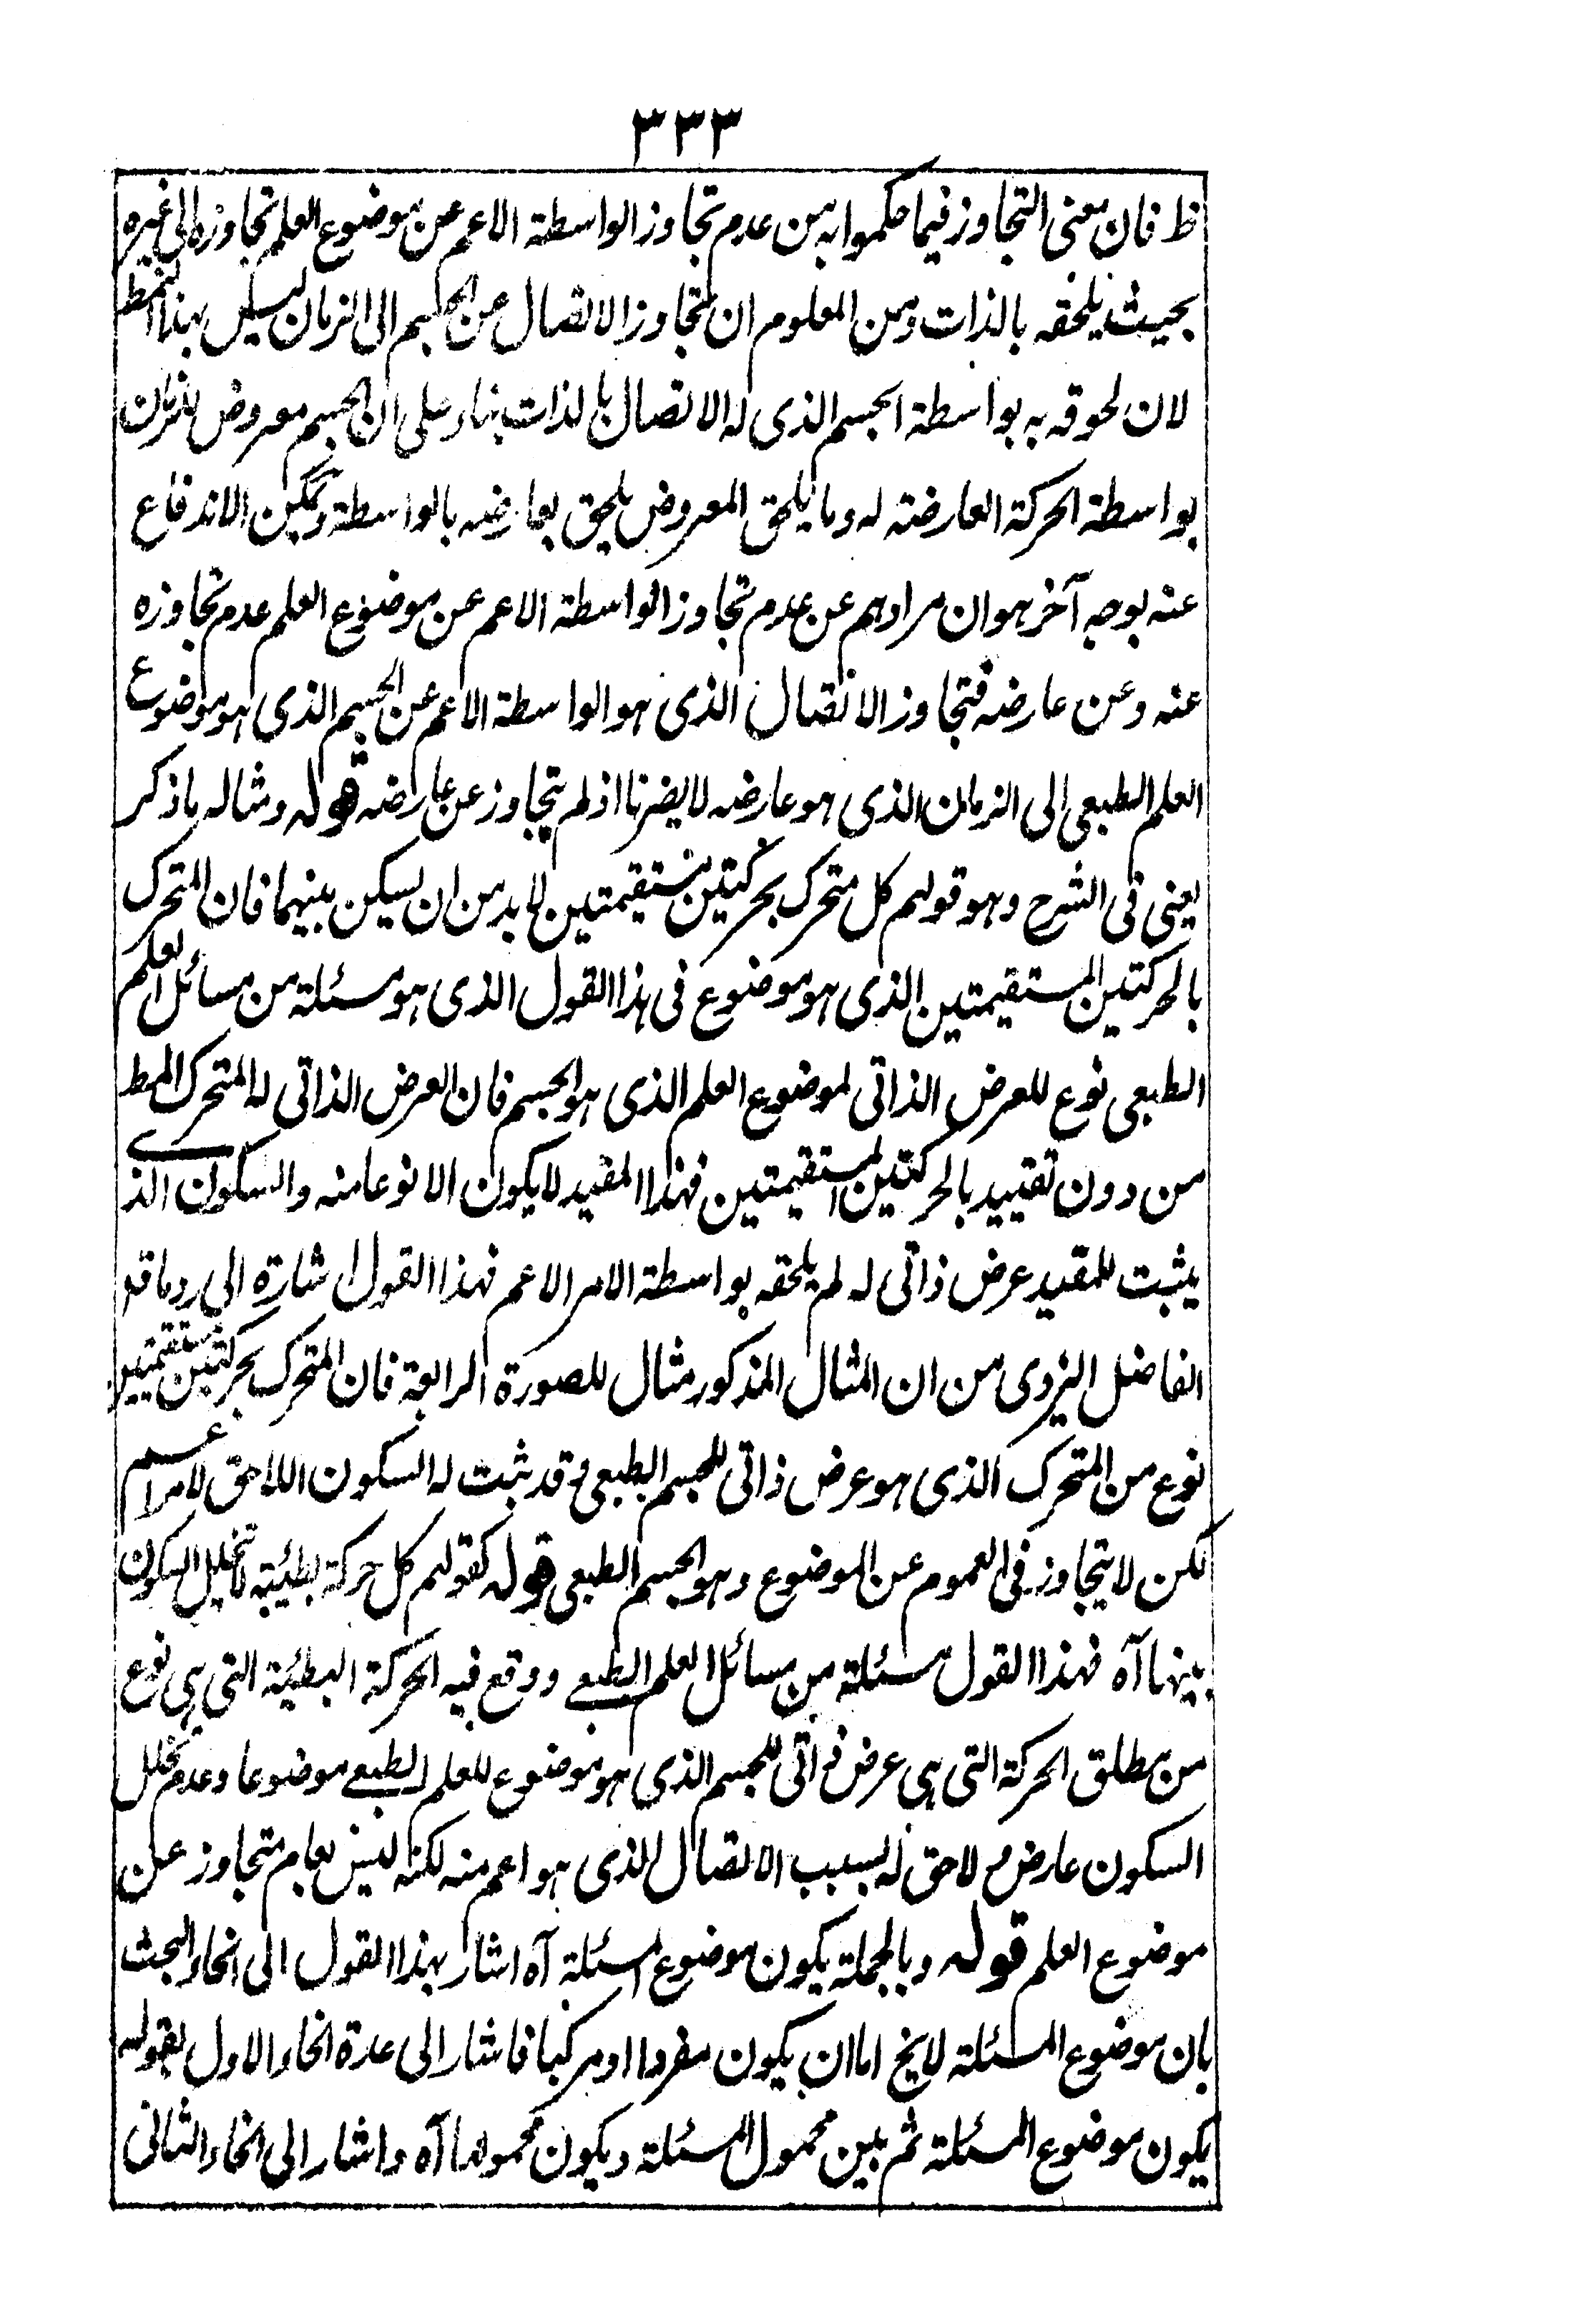 ٣٣٣
ظ فان معنى التجاوز فيما حكموا به من عدم تجاوز الواسطة الاعم عن موضوع العلم تجاوزه الى غيره
بحيث يلحقه بالذات ومن المعلوم ان تجاوز الاتصال عن الجسم الى الزمان ليس بهذا النمط
لان لحوقه به بواسطة الجسم الذى له الاتصال بالذات بناء على ان الجسم معروض للزمان
بواسطة الحركة العارضة له وما يلحق المعروض يلحق بعارضه بالواسطة ويمكن الاندفاع
عنه بوجه آخر هو ان مرادهم عن عدم تجاوز الواسطة الاعم عن موضوع العلم عدم تجاوزه
عنه وعن عارضه فتجاوز الاتصال الذى هو الواسطة الاعم عن الجسم الذى هو موضوع
العلم الطبعى الى الزمان الذى هو عارضه لا يضرنا اذ لم يتجاوز عن عارضه قوله ومثاله ما ذكر
يعنى فى الشرح وهو قولهم كل متحرك بحركتين مستقيمتين لا بد من ان يسكن بينهما فان المتحرك
بالحركتين المستقيمتين الذى هو موضوع فى هذا القول الذى هو مسئلة من مسائل العلم
الطبعى نوع للعرض الذاتى لموضوع العلم الذى هو الجسم فان العرض الذاتى له المتحرك المط
من دون تقييد بالحركتين المستقيمتين فهذا المقيد لا يكون الا نوعا منه والسكون الذى
يثبت للمقيد عرض ذاتى له لم يلحقه بواسطة الامر الاعم فهذا القول اشارة الى رد ما قد
الفاضل اليزدى من ان المثال المذكور مثال للصورة الرابعة فان المتحرك بحركتين مستقيمتين
نوع من المتحرك الذى هو عرض ذاتى للجسم الطبعى وقد ثبت له السكون اللاحق لامر اعم
لكن لا يتجاوز فى العموم عن الموضوع وهو الجسم الطبعى قوله كقولهم كل حركة بطيئة لا تخلل السكون
بينها آه فهذا القول مسئلة من مسائل العلم الطبعى ووقع فيه الحركة البطيئة التى هى نوع
من مطلق الحركة التى هى عرض ذاتى للجسم الذى هو موضوع للعلم الطبعى موضوعا وعدم تخلل
السكون عارض لاحق له بسبب الاتصال الذى هو اعم منه لكنه ليس بعام متجاوز عن
موضوع العلم قوله وبالجملة يكون موضوع المسئلة آه اشار بهذا القول الى انحاء البحث
بان موضوع المسئلة لا يخ اما ان يكون مفردا او مركبا فاشار الى عدة انحاء الاول بقوله
يكون موضوع المسئلة ثم بين محمول المسئلة ويكون محمولها آه واشار الى انحاء الثانى